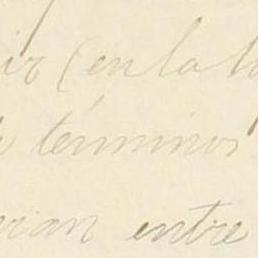 ir (en la
términos
vian entre